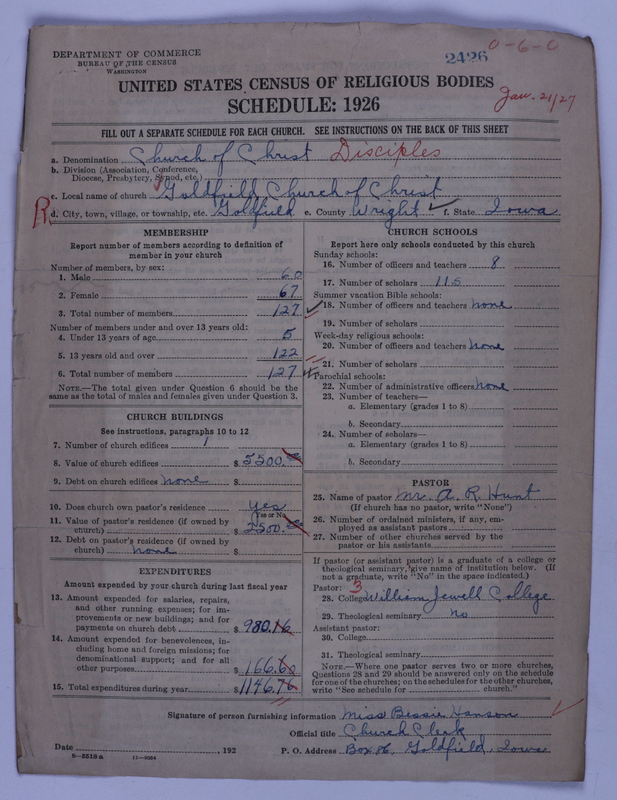 DEPARTMENT OF COMMERCE
BUREAU OF THE CENSUS
WASHINGTON
2426
0-6-0
UNITED STATES CENSUS OF RELIGIOUS BODIES
SCHEDULE: 1926
Jan. 21/27
FILL OUT A SEPARATE SCHEDULE FOR EACH CHURCH. SEE INSTRUCTIONS ON THE BACK OF THIS SHEET
a. Denomination Church of Christ Disciples
b. Division (Association, Conference, Diocese, Presbytery, Synod, etc.)
c. Local name of church Goldfield Church of Christ
R
d. City, town, village, or township, etc. Goldfield e. County Wright f. State Iowa
MEMBERSHIP
Report number of members according to definition of
member in your church
Number of members by sex:
1. Male 60
2. Female 67
3. Total number of members 127
Number of members under and over 13 years old:
4. Under 13 years of age 5
5. 13 years old and over 122
6. Total number of members 127
NOTE.—The total given under Question 6 should be the
same as the total of males and females given under Question 3.
CHURCH BUILDINGS
See instructions, paragraphs 10 to 12
7. Number of church edifices 1
8. Value of church edifices $ 5500.00
9. Debt on church edifices none $
10. Does church own pastor's residence yes
(Yes or No)
11. Value of pastor's residence (if owned by
church) $ 2500.00
12. Debt on pastor's residence (if owned by
church) none $
EXPENDITURES
Amount expended by your church during last fiscal year
13. Amount expended for salaries, repairs,
and other running expenses; for im-
provements or new buildings; and for
payments on church debt $ 980.16
14. Amount expended for benevolences, in-
cluding home and foreign missions; for
denominational support; and for all
other purposes 166.60
15. Total expenditures during year $ 1146.76
CHURCH SCHOOLS
Report here only schools conducted by this church
Sunday schools:
16. Number of officers and teachers 8
17. Number of scholars 115
Summer vacation Bible schools:
18. Number of officers and teachers none
19. Number of scholars
Week-day religious schools:
20. Number of officers and teachers none
21. Number of scholars
Parochial schools:
22. Number of administrative officers none
23. Number of teachers—
a. Elementary (grades 1 to 8)
b. Secondary
24. Number of scholars—
a. Elementary (grades 1 to 8)
b. Secondary
PASTOR
25. Name of pastor Mr. A. R. Hunt
(If church has no pastor, write "None")
26. Number of ordained ministers, if any, em-
ployed as assistant pastors
27. Number of other churches served by the
pastor or his assistants
If pastor (or assistant pastor) is a graduate of a college or
theological seminary, give name of institution below. (If
not a graduate, write "No" in the space indicated.)
Pastor: 3
28. College William Jewell College
29. Theological seminary no
Assistant pastor:
30. College
31. Theological seminary
NOTE.—Where one pastor serves two or more churches,
Questions 28 and 29 should be answered only on the schedule
for one of the churches; on the schedules for the other churches,
write "See schedule for church."
Signature of person furnishing information Miss Bessie Hanson
Official title Church Clerk
Date , 192 P. O. Address Box 86, Goldfield, Iowa
8—5518a 11—9384